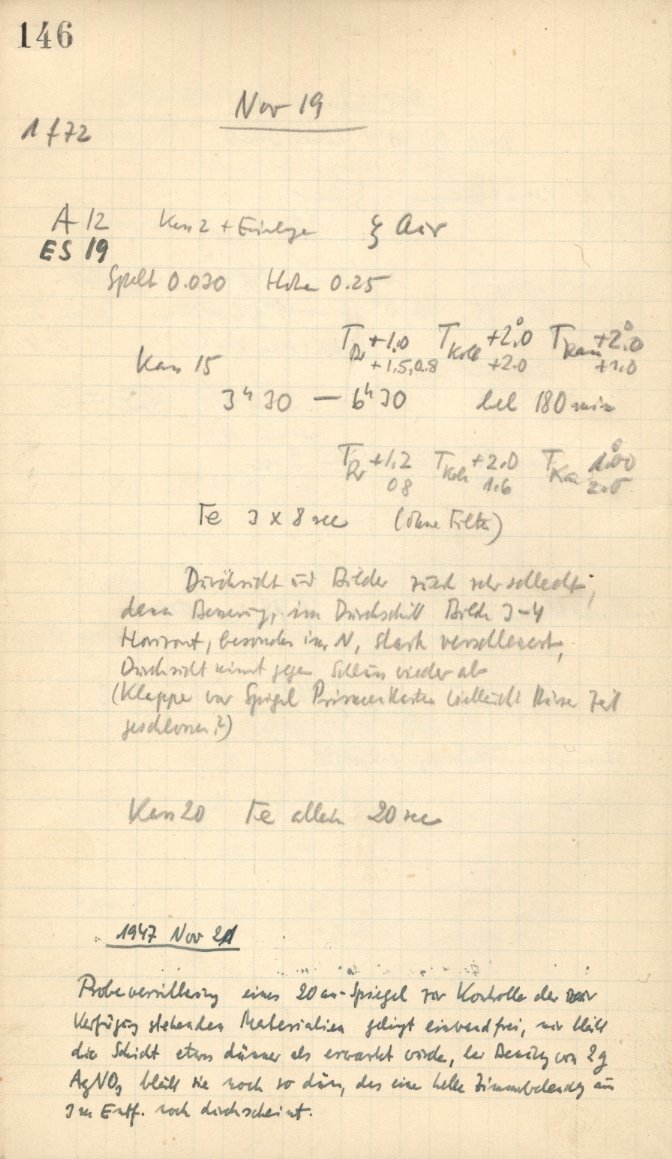 146
Nov 19
1 f72
A 12 Kass 2 + Einlage ξ Aur
ES 19
Spalt 0.020 Höhe 0.25
T +1.0 T Koll +2.0 T Kam +2.0
Kass 15 +1.5, 0.8 +2.0 +1.0
3ʰ30 — 6ʰ30 bel 180 min
T +1.2 T Koll +2.0 T Ka 1.00
0.8 1.6 2.0
Fe 3 x 8 sec (ohne Filter)
Durchsicht und Bilder zuerst sehr schlecht,
dann Besserung, im Durchschnitt Bilder 3-4
Horizont, besonders im N, stark verschleiert,
Durchsicht nimmt gegen Schluss wieder ab
(Klappe vor Spiegel Prismenkasten vielleicht kurze Zeit
geschlossen?)
Kass 20 Fe allein 20 sec
1947 Nov 21
Probeversilberung eines 20 cm-Spiegel zur Kontrolle der zur
Verfügung stehenden Materialien gelingt einwandfrei, nur bleibt
die Schicht etwas dünner als erwartet würde, bei Benützung von 2g
AgNO₃ bleibt sie noch so dünn, das eine helle Zimmerbeleuchtung aus
3 m Entf. noch durchscheint.